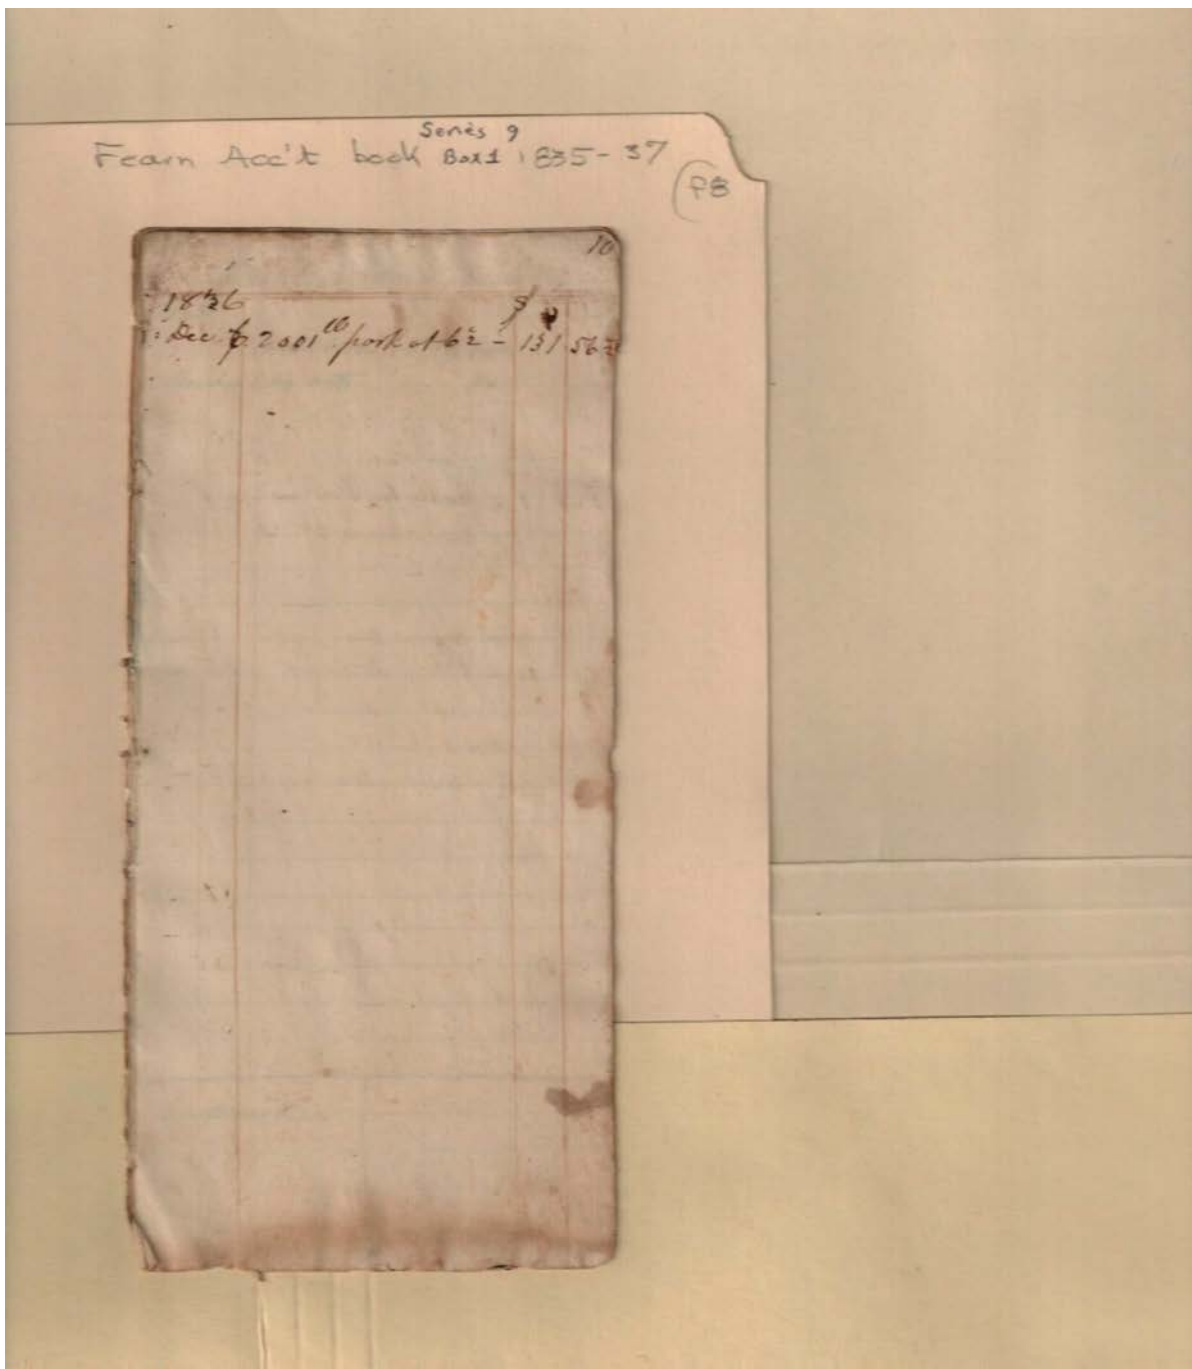 Series 9
Fearn Acc't book Box 1 1835-37
P8
10
1836
$
Dec. 6 2001 lb pork at 6½ - 131 56½